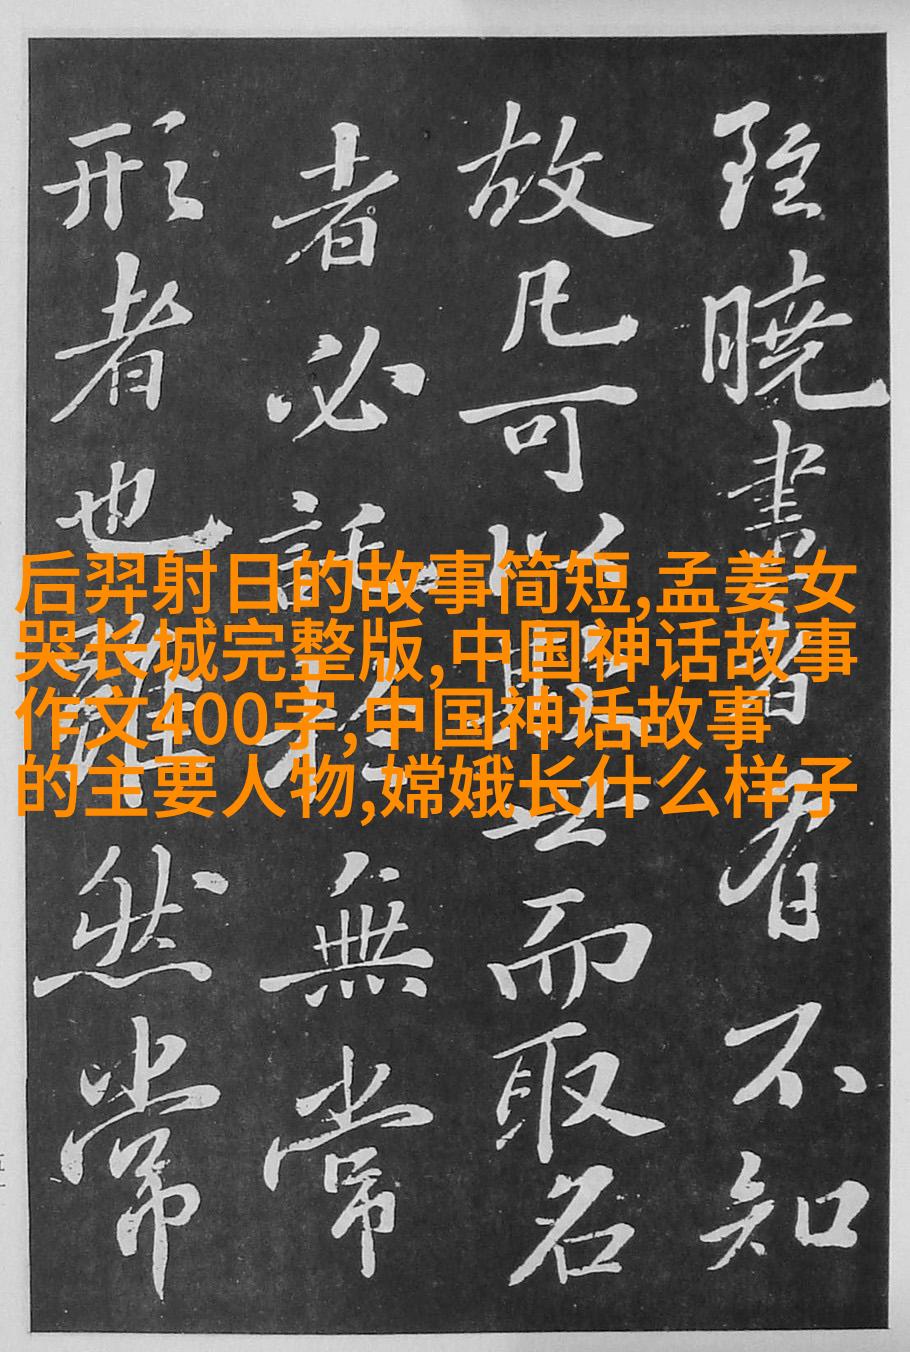 至曉畫者有不知
故凡可以欺世而取名
者必託於無常
形者也雖然常
后羿射日的故事简短,孟姜女
哭长城完整版,中国神话故事
作文400字,中国神话故事
的主要人物,嫦娥长什么样子